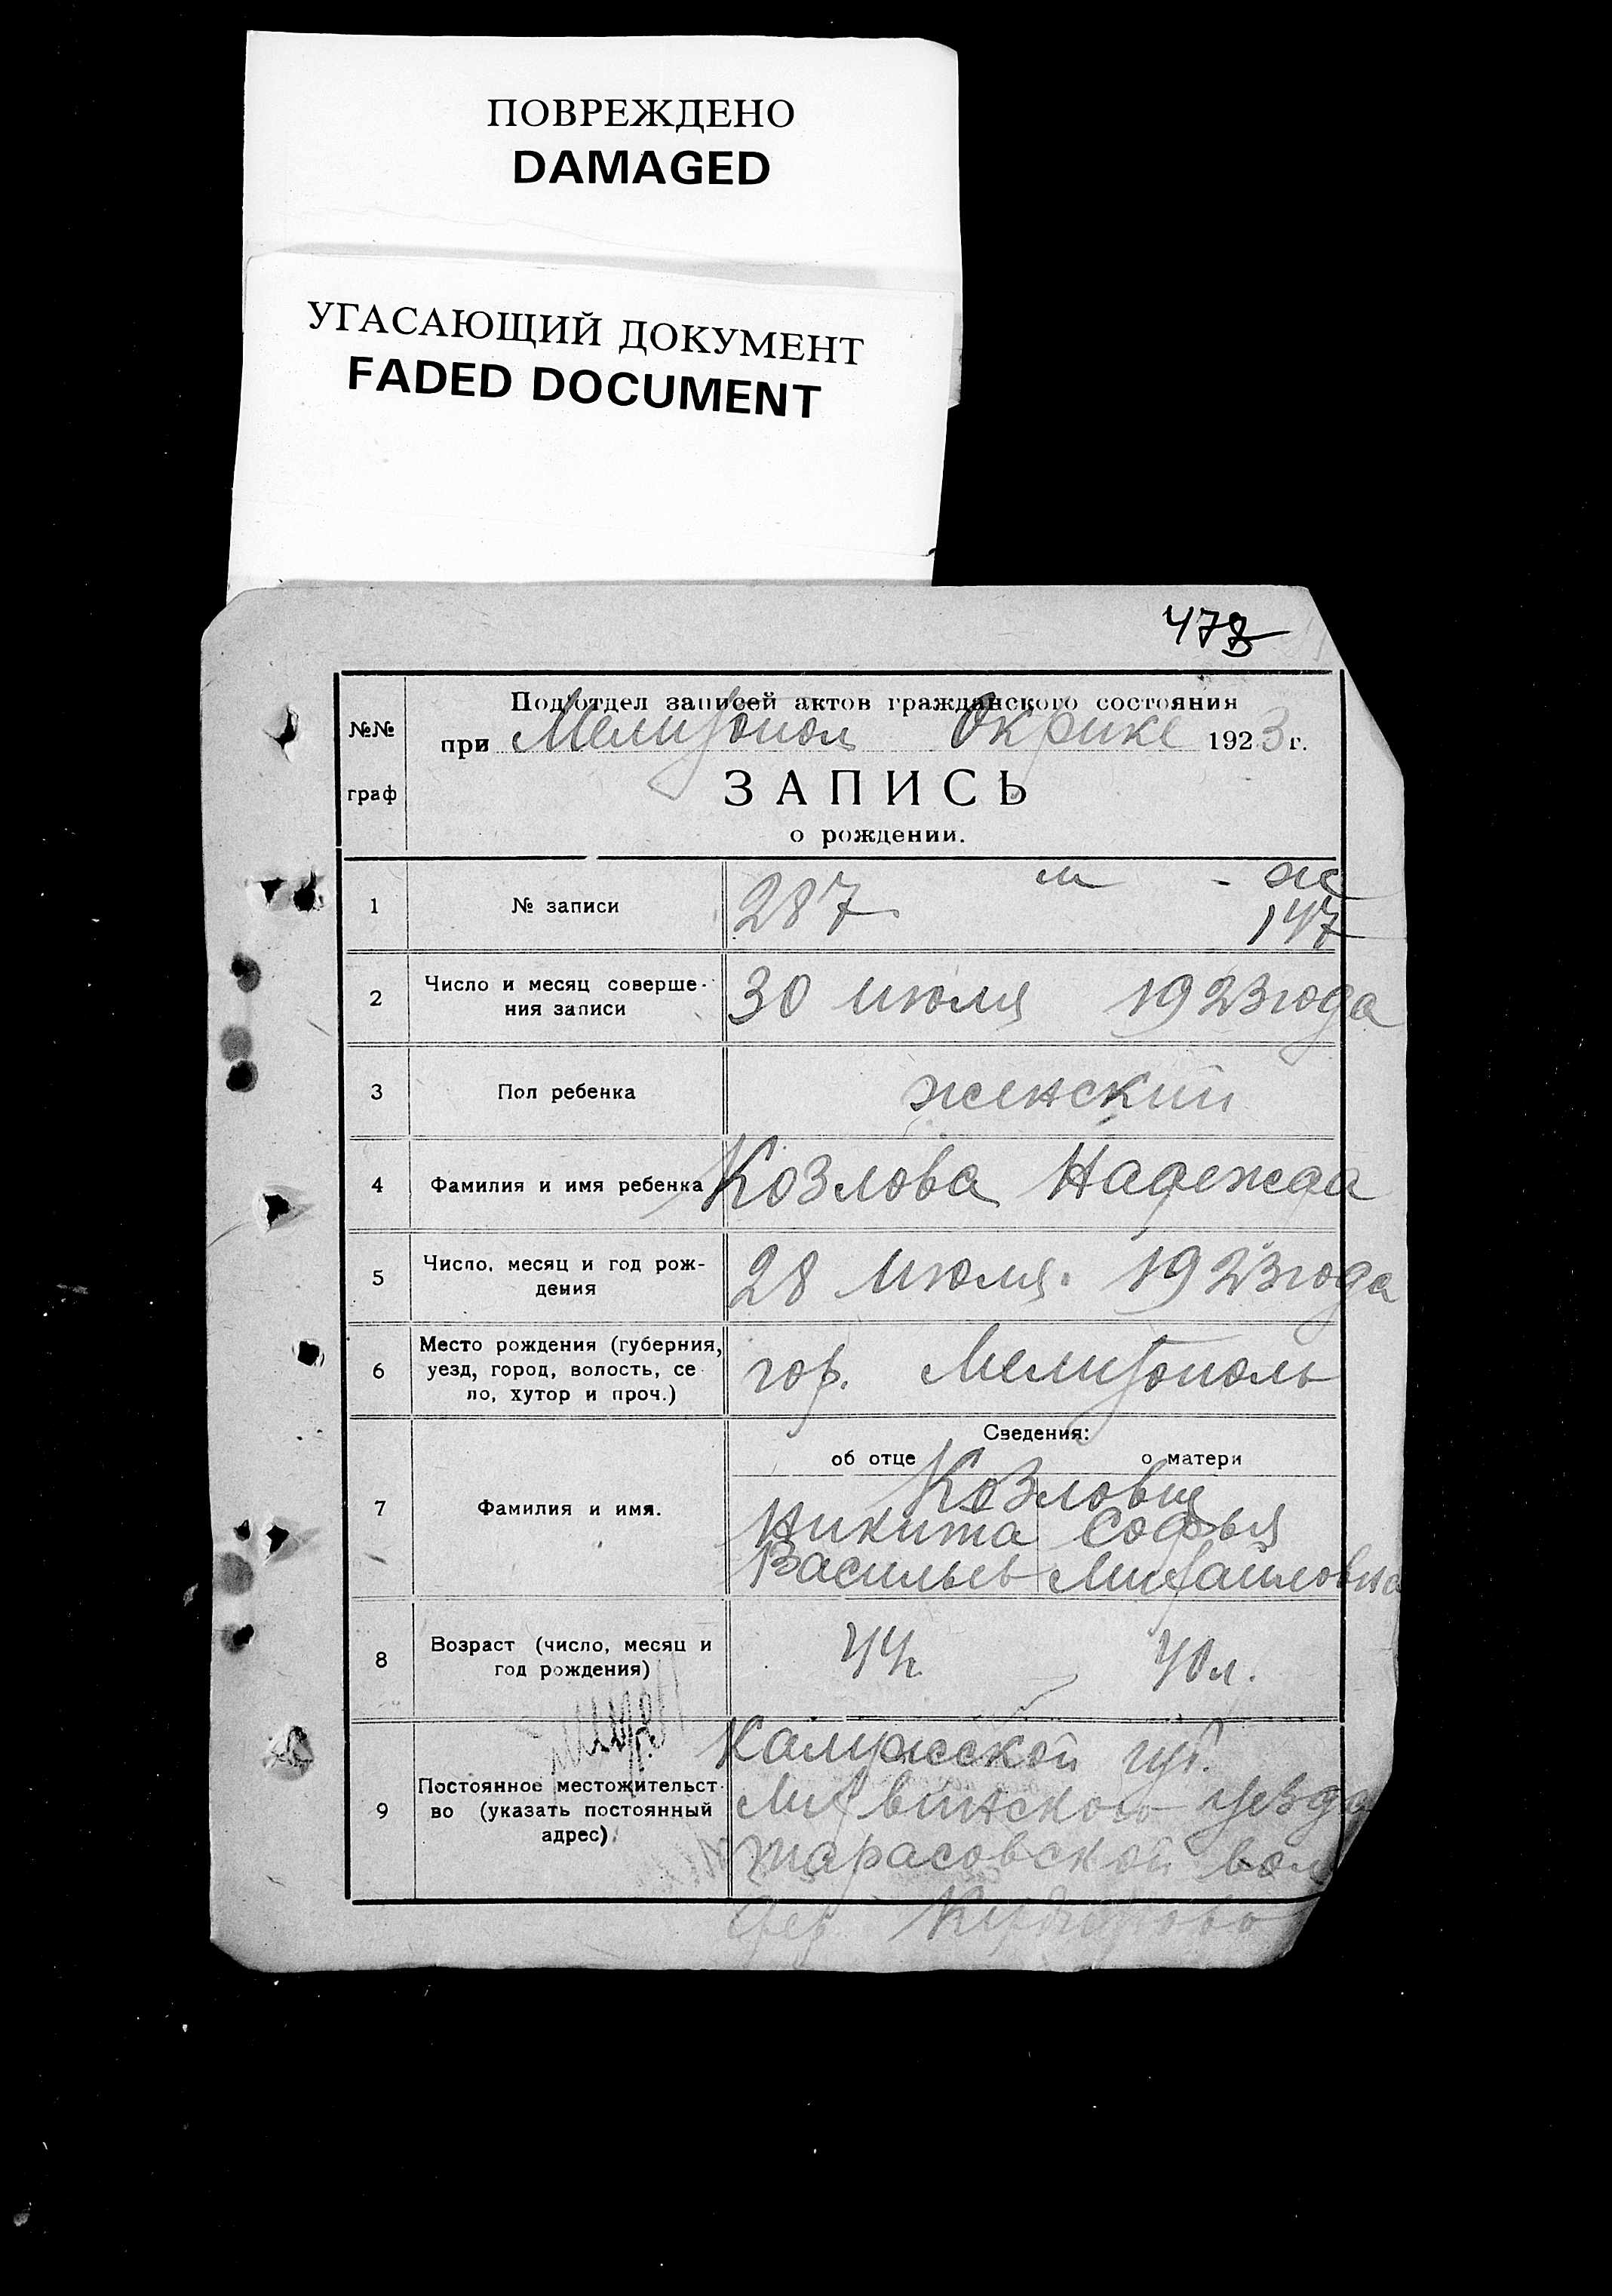 ПОВРЕЖДЕНО
DAMAGED
УГАСАЮЩИЙ ДОКУМЕНТ
FADED DOCUMENT
473
Под'отдел записей актов гражданского состояния
№№ граф
при Мелитопол Окрике 1923 г.
ЗАПИСЬ
о рождении.
м - ж
1 № записи 287 147
2 Число и месяц соверше-
ния записи 30 июля 1923 года
3 Пол ребенка женский
4 Фамилия и имя ребенка Козлова Надежда
5 Число, месяц и год рож-
дения 28 июля. 1923 года
6 Место рождения (губерния,
уезд, город, волость, се
ло, хутор и проч.) гор. Мелитополь
Сведения:
об отце о матери
Козловы
7 Фамилия и имя. Никита Софья
Васильев Михайловна
8 Возраст (число, месяц и
год рождения) 44 40 л.
Калужской губ.
9 Постоянное местожительст-
во (указать постоянный
адрес) Лихвинского уезда
Тарасовской вол
дер.